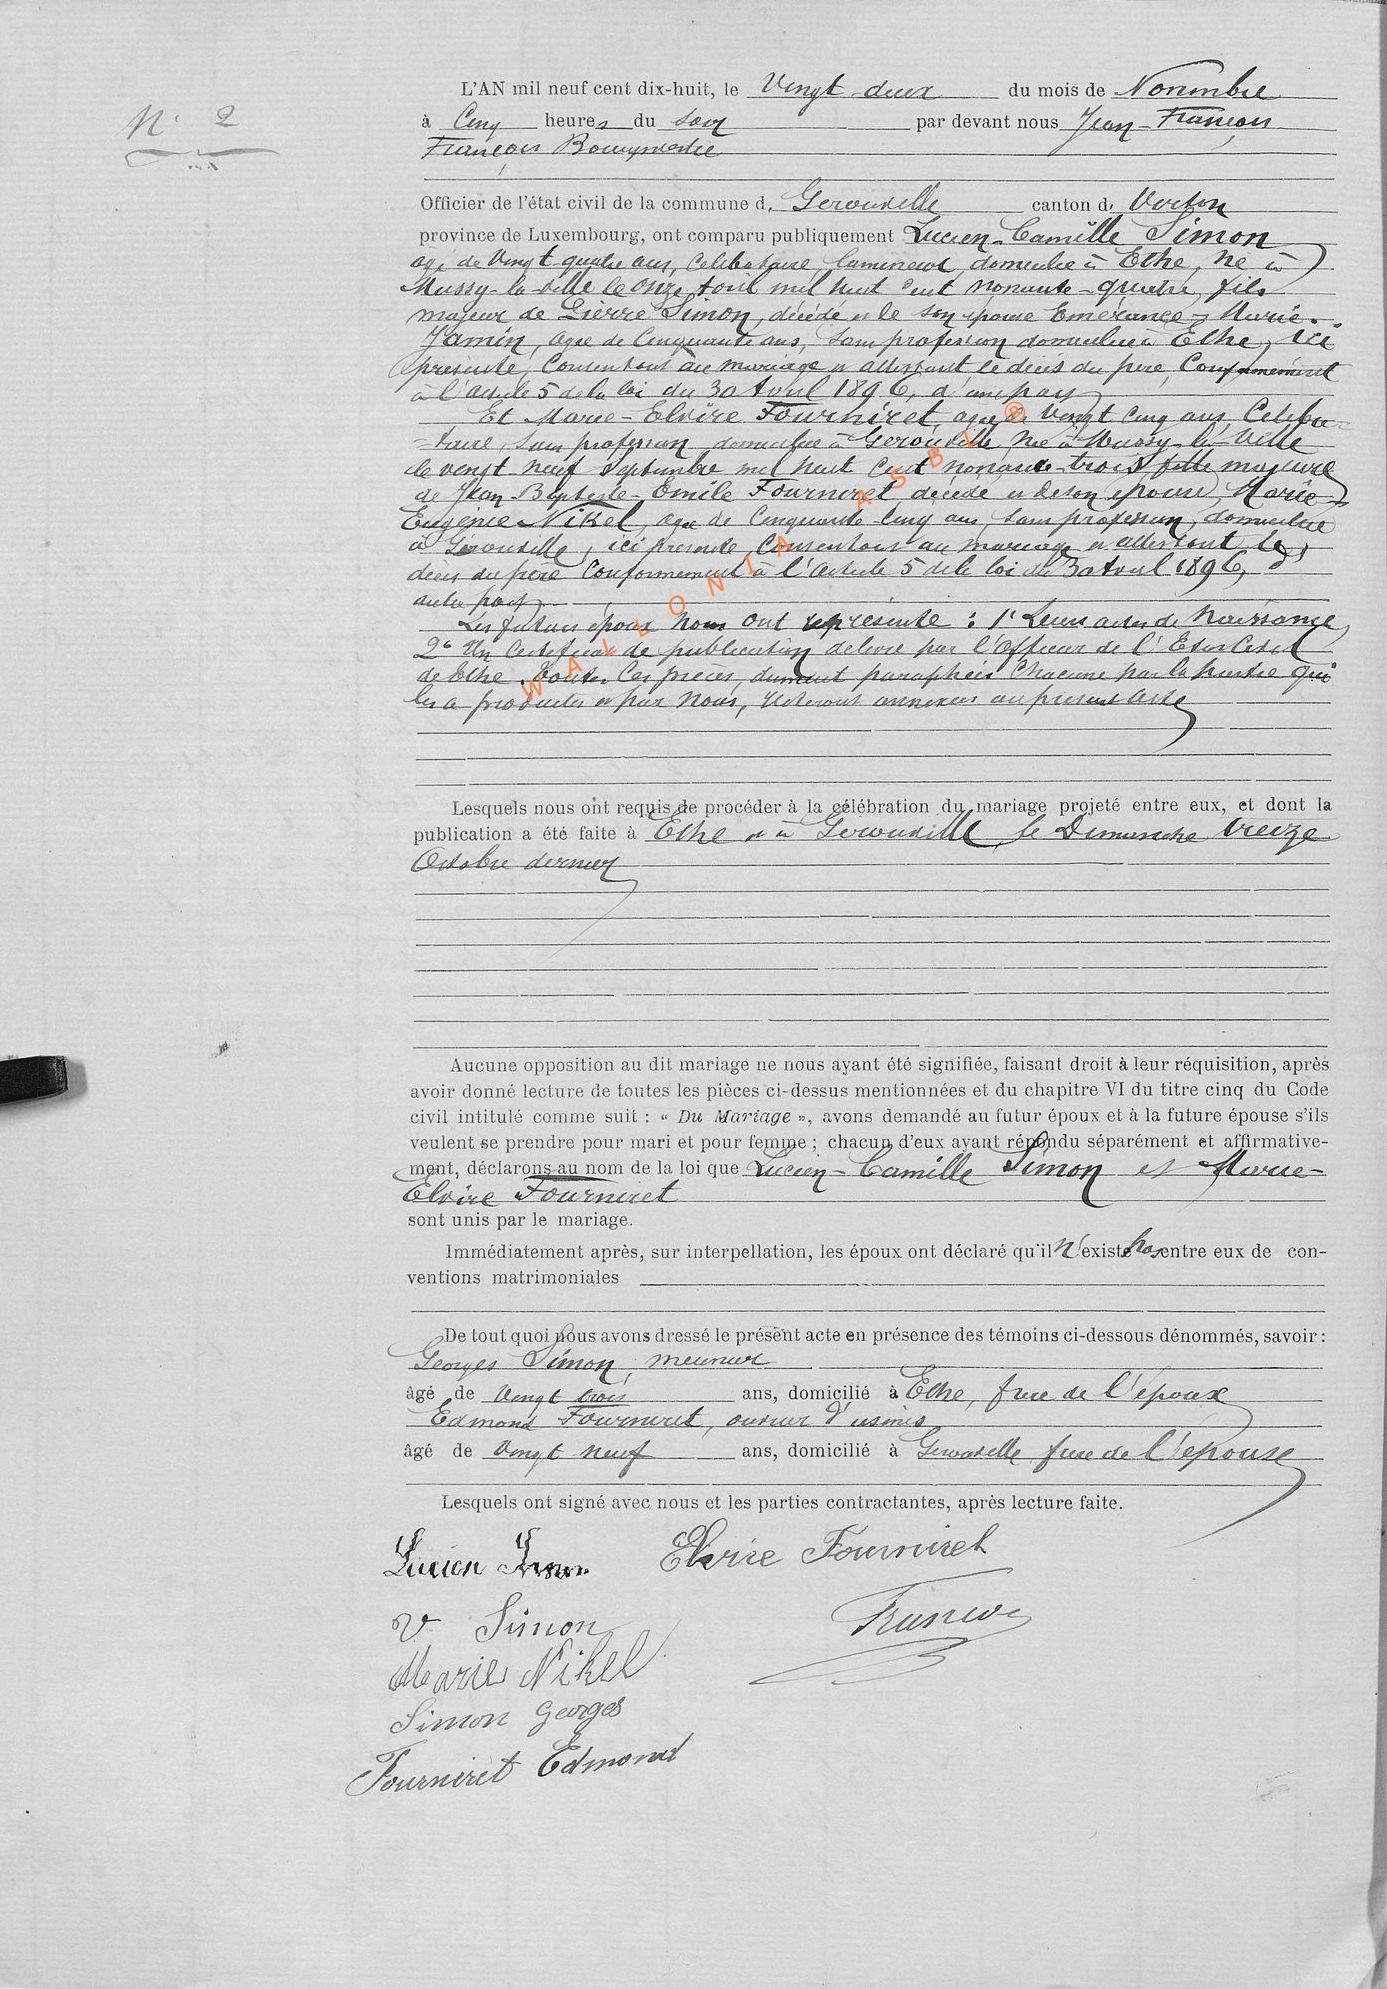 N° 2
L'AN mil neuf cent dix-huit, le Vingt-deux du mois de Novembre
à Cinq heures du soir par devant nous Jean-François
François Bourgmestre
Officier de l'état civil de la commune d. Gérouville canton d. Virton
province de Luxembourg, ont comparu publiquement Lucien-Camille Simon
âgé de Vingt quatre ans, Célibataire, lamineur, domicilié à Ethe, né à
Mussy-la-ville le onze avril mil huit cent nonante-quatre, fils
majeur de Pierre Simon, décédé et de son épouse Emérance-Marie
Jamin, agée de Cinquante ans, sans profession domiciliée à Ethe, ici
présente, Consentant au mariage et attestant le décès du père, Conformément
à l'article 5 de la loi du 30 Avril 1896, d'une part
Et Marie-Elvire Fourniret, agée de Vingt Cinq ans, Céliba-
=taire, sans profession domiciliée à Gérouville, née à Mussy-la-Ville
le vingt neuf Septembre mil huit Cent nonante-trois fille majeure
de Jean-Baptiste-Emile Fourniret, décédé et de son épouse, Marie-
Eugénie Nikel, agée de Cinquante Cinq ans, sans profession, domiciliée
à Gérouville, ici présente, Consentant au mariage et attestant le
décès du père Conformément à l'Article 5 de la loi du 30 Avril 1896,
autre part
Les futurs époux Nous ont représenté : 1° Leurs actes de Naissance,
2° Un Certificat de publication délivré par l'Officier de l'Etat Civil
de Ethe. Toutes Ces pièces, dument paraphées Chacune par la partie qui
les a produites et par Nous, resteront annexées au présent acte
Lesquels nous ont requis de procéder à la célébration du mariage projeté entre eux, et dont la
publication a été faite à Ethe et à Gérouville, le Dimanche treize
Octobre dernier
Aucune opposition au dit mariage ne nous ayant été signifiée, faisant droit à leur réquisition, après
avoir donné lecture de toutes les pièces ci-dessus mentionnées et du chapitre VI du titre cinq du Code
civil intitulé comme suit : « Du Mariage », avons demandé au futur époux et à la future épouse s'ils
veulent se prendre pour mari et pour femme ; chacun d'eux ayant répondu séparément et affirmative-
ment, déclarons au nom de la loi que Lucien-Camille Simon et Marie-
Elvire Fourniret
sont unis par le mariage.
Immédiatement après, sur interpellation, les époux ont déclaré qu'il n'existe pas entre eux de con-
ventions matrimoniales
De tout quoi nous avons dressé le présent acte en présence des témoins ci-dessous dénommés, savoir :
Georges Simon, meunier
âgé de Vingt trois ans, domicilié à Ethe, frère de l'époux
Edmond Fourniret, ouvrier d'usines
âgé de Vingt neuf ans, domicilié à Gérouville frère de l'épouse
Lesquels ont signé avec nous et les parties contractantes, après lecture faite.
Lucien Simon Elvire Fourniret
V Simon François
Marie Nikel
Simon Georges
Fourniret Edmond
WALLONIA ASBL ®